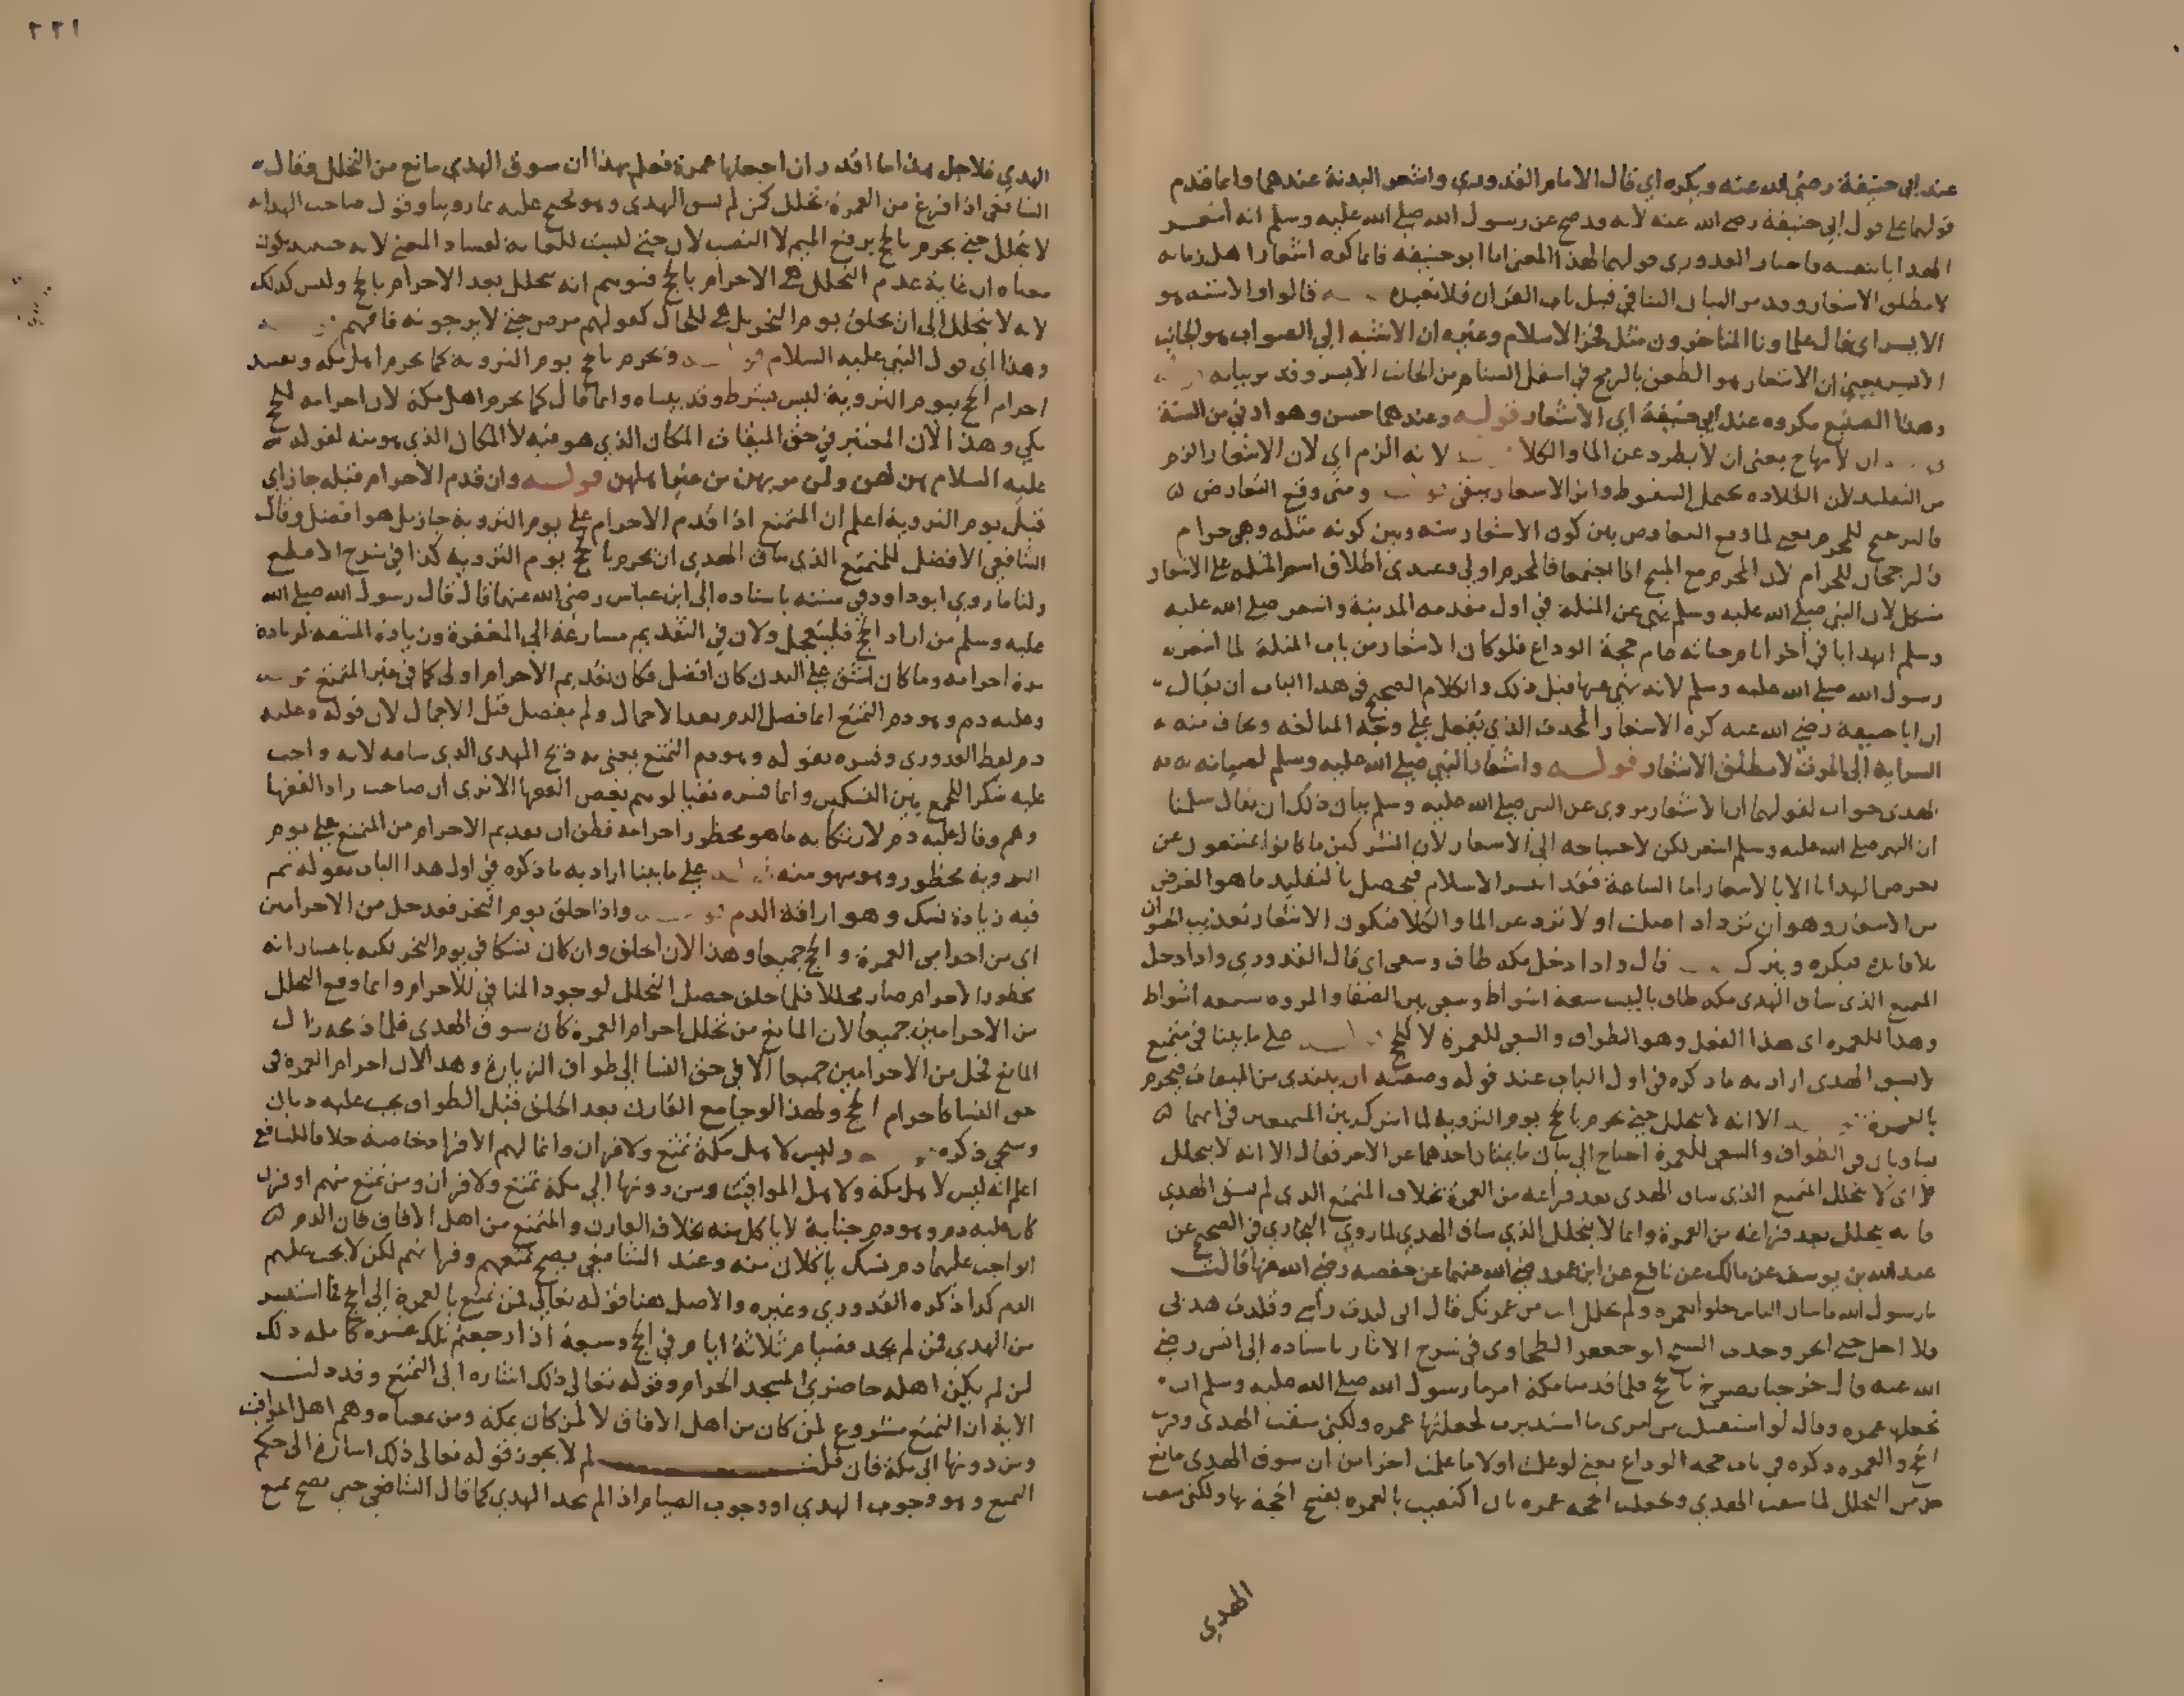 عند ابي حنيفة رضي الله عنه ويكره اي قال الامام القدوري واشعر البدنة عندهما وانما قدم
قولهما على قول ابي حنيفة رضي الله عنه لانه قد صح عن رسول الله صلى الله عليه وسلم انه اشعر
الهدايا بنفسه فاختار القدوري قولهما لهذا المعنى اما ابو حنيفه فانما كره اشعار اهل زمانه
لا مطلق الاشعار وقد مر البيان الشافي قبل باب القران فلا نعيده قالوا والاشبه هو
الايسر اي قال علماونا المتاخرون مثل فخر الاسلام وغيره ان الاشبه الي الصواب هو الجانب
الايسر يعني ان الاشعار هو الطعن بالرمح في اسفل السنام من الجانب الايسر وقد مر بيانه
وهذا الصنيع مكروه عند ابي حنيفة اي الاشعار قوله وعندهما حسن وهو ادنى من السنة
ان لا يهاج يعني ان لا يطرد عن الما والكلا لانه الزم اي لان الاشعار الزم
من التقليد لان القلاده تحتمل السقوط واثر الاشعار يبقى ومتى وقع التعارض
فالترجيح للمحرم يعني لما وقع التعارض بين كون الاشعار سنة وبين كونه مثله وهي حرام
فالرجحان للحرام لان المحرم مع المبيح اذا اجتمعا فالمحرم اولى وعندي اطلاق اسم المثله على الاشعار
مشكل لان النبي صلى الله عليه وسلم نهى عن المثلة في اول مقدمه المدينة واشعر صلى الله عليه
وسلم الهدايا في اخر ايام حياته عام حجة الوداع فلو كان الاشعار من باب المثلة لما اشعره
رسول الله صلى الله عليه وسلم لانه نهى عنها قبل ذلك والكلام الصحيح في هذا الباب ان يقال
ان ابا حنيفة رضي الله عنه كره الاشعار المحدث الذي يفعل على وجه المبالغه ويخاف منه
السرايه الى الموت لا مطلق الاشعار قوله واشعار النبي صلى الله عليه وسلم لصيانه
الهدى جواب لقولهما ان الاشعار مروي عن النبي صلى الله عليه وسلم بيان ذلك ان يقال سلمنا
ان النبي صلى الله عليه وسلم اشعر لكن لاحتياجه الى الاشعار لان المشركين ما كانوا يمتنعون عن
تعرض الهدايا الا بالاشعار اما الساعة فقد انتشر الاسلام فيحصل بالتقليد ما هو الغرض
من الاشعار وهو ان ترد اذا ضلت او لا ترد عن الما والكلا فيكون الاشعار تعذيب الحيوان
بلا فايده فيكره ويترك قال واذا دخل مكه طاف وسعى اي قال القدوري واذا دخل
المتمتع الذي ساق الهدى مكه طاف بالبيت سبعة اشواط وسعى بين الصفا والمروه سبعه اشواط
وهذا للعمره اى هذا الفعل وهو الطواف والسعي للعمرة لا للحج على ما بينا في متمتع
لا يسوق الهدى اراد به ما ذكره في اول الباب عند قوله وصفته ان يبتدي من الميقات فيحرم
بالعمرة الا انه لا يتحلل حتى يحرم بالحج يوم التروية لما اشترك بين المتمتعين في انهما
ياتيان في الطواف والسعي للعمرة احتاج الى بيان ما يمتاز احدهما عن الاخر فقال الا انه لا يتحلل
اى لا يتحلل المتمتع الذي ساق الهدى بعد فراغه من العمرة بخلاف المتمتع الذي لم يسق الهدي
فانه يتحلل بعد فراغه من العمرة وانما لا يتحلل الذي ساق الهدي لما روي البخاري في الصحيح عن
عبد الله بن يوسف عن مالك عن نافع عن ابن عمر رضي الله عنهما عن حفصه رضي الله عنها قالت
يا رسول الله ما شان الناس حلوا بعمره ولم تحلل انت من عمرتك قال اني لبدت راسي وقلدت هديى
فلا احل حتى انحر وحدث الشيخ ابو جعفر الطحاوى في شرح الاثار باسناده الى انس رضي
الله عنه قال خرجنا نصرخ بالحج فلما قدمنا مكة امرنا رسول الله صلى الله عليه وسلم ان
نجعلها عمره وقال لو استقبلت من امرى ما استدبرت لجعلتها عمره ولكني سقت الهدى وقرنت
الحج والعمره ذكره في باب حجه الوداع يعني لو علمت اولا ما علمت اخرا من ان سوق الهدي مانع
من التحلل لما سقت الهدي وجعلت الحجه عمره بان اكتفيت بالعمره بفسخ الحجة بها ولكني سقت
الهدي
٢٢١
الهدي فلاجل هذا ما اقدر ان اجعلها عمرة فعلم بهذا ان سوق الهدي مانع من التحلل وقال
الشافعي اذا فرغ من العمرة تحلل كمن لم يسق الهدي وهو محجوج عليه بما روينا وقول صاحب الهدايه
لا يتحلل حتى يحرم بالحج برفع الميم لا النصب لان حتى ليست للغاية لفساد المعنى لانه حينئذ يكون
معناه ان غاية عدم التحلل هي الاحرام بالحج فتوهم انه يتحلل بعد الاحرام بالحج وليس كذلك
لانه لا يتحلل الى ان يحلق يوم النحر بل هي للحال كقولهم مرض حتى لا يرجونه فافهم
وهذا اي قول النبي عليه السلام قوله ويحرم بالحج يوم التروية كما يحرم اهل مكه وتقييد
احرام الحج بيوم التروية ليس بشرط وقد بيناه وانما قال كما يحرم اهل مكة لان احرامه للحج
مكي وهذا لان المعتبر في حق الميقات المكان الذي هو فيه لا المكان الذي هو منه لقوله
عليه السلام هن لهن ولمن مر بهن من غير اهلهن قوله وان قدم الاحرام قبله جاز اي
قبل يوم التروية اعلم ان المتمتع اذا قدم الاحرام على يوم التروية جاز بل هو افضل وقال
الشافعي الافضل للمتمتع الذي ساق الهدي ان يحرم بالحج يوم التروية كذا في شرح الاقطع
ولنا ما روي ابو داود في سننه باسناده الى ابن عباس رضي الله عنهما قال قال رسول الله صلى الله
عليه وسلم من اراد الحج فليتعجل ولان في التقديم مسارعة الى المغفرة وزيادة المشقه لزيادة
مدة احرامه وما كان اشق على البدن كان افضل فكان تقديم الاحرام اولى كما في غير المتمتع
وعليه دم وهو دم التمتع انما فصل الدم بعد الاجمال ولم يفصل قبل الاجمال لان قوله وعليه
دم لفظ القدوري وفسره بقوله وهو دم التمتع يعني به ذبح الهدى الذي ساقه لانه واجب
عليه شكرا للجمع بين النسكين وانما فسره نفيا لوهم بعض الفقها الا ترى ان صاحب زاد الفقها
وهم وقال عليه دم لارتكابه ما هو محظور احرامه فظن ان تقديم الاحرام من المتمتع على يوم
التروية محظور وهو سهو منه على ما بينا اراد به ما ذكره في اول هذا الباب بقوله ثم
فيه زيادة نسك وهو اراقة الدم واذا حلق يوم النحر فقد حل من الاحرامين
اي من احرامي العمرة والحج جميعا وهذا لان الحلق وان كان نسكا في يوم النحر لكنه باعتبار انه
محظور الاحرام صار محللا فلما حلق حصل التحلل لوجود المنافي للاحرام وانما وقع التحلل
من الاحرامين جميعا لان المانع من تحلل احرام العمرة كان سوق الهدى فلما ذبحه زال
المانع فحل من الاحرامين جميعا الا في حق النسا الى طواف الزيارة وهذا لان احرام العمرة في
حق النسا كاحرام الحج ولهذا لو جامع القارن بعد الحلق قبل الطواف يجب عليه دمان
وسيجي ذكره وليس لاهل مكة تمتع ولا قران وانما لهم الافراد خاصة خلافا للشافعي
اعلم انه ليس لاهل مكه ولاهل المواقيت ومن دونها الى مكة تمتع ولا قران ومن تمتع منهم او قرن
كان عليه دم وهو دم جناية لا ياكل منه بخلاف القارن والمتمتع من اهل الافاق فان الدم
الواجب عليهما دم نسك ياكلان منه وعند الشافعي يصح تمتعهم وقرانهم لكن لا يجب عليهم
الدم كذا ذكره القدوري وغيره والاصل هنا قوله تعالى فمن تمتع بالعمرة الى الحج فما استيسر
من الهدي فمن لم يجد فصيام ثلاثة ايام في الحج وسبعة اذا رجعتم تلك عشره كامله ذلك
لمن لم يكن اهله حاضري المسجد الحرام وقوله تعالى ذلك اشاره الى التمتع وقد دلت
الاية ان التمتع مشروع لمن كان من اهل الافاق لا لمن كان بمكة ومن بمعناه وهم اهل المواقيت
ومن دونها الى مكة فان قلت لم لا يجوز قوله تعالى ذلك اشارة الى حكم
التمتع وهو وجوب الهدي او وجوب الصيام اذا لم يجد الهدي كما قال الشافعي حتى يصح تمتع